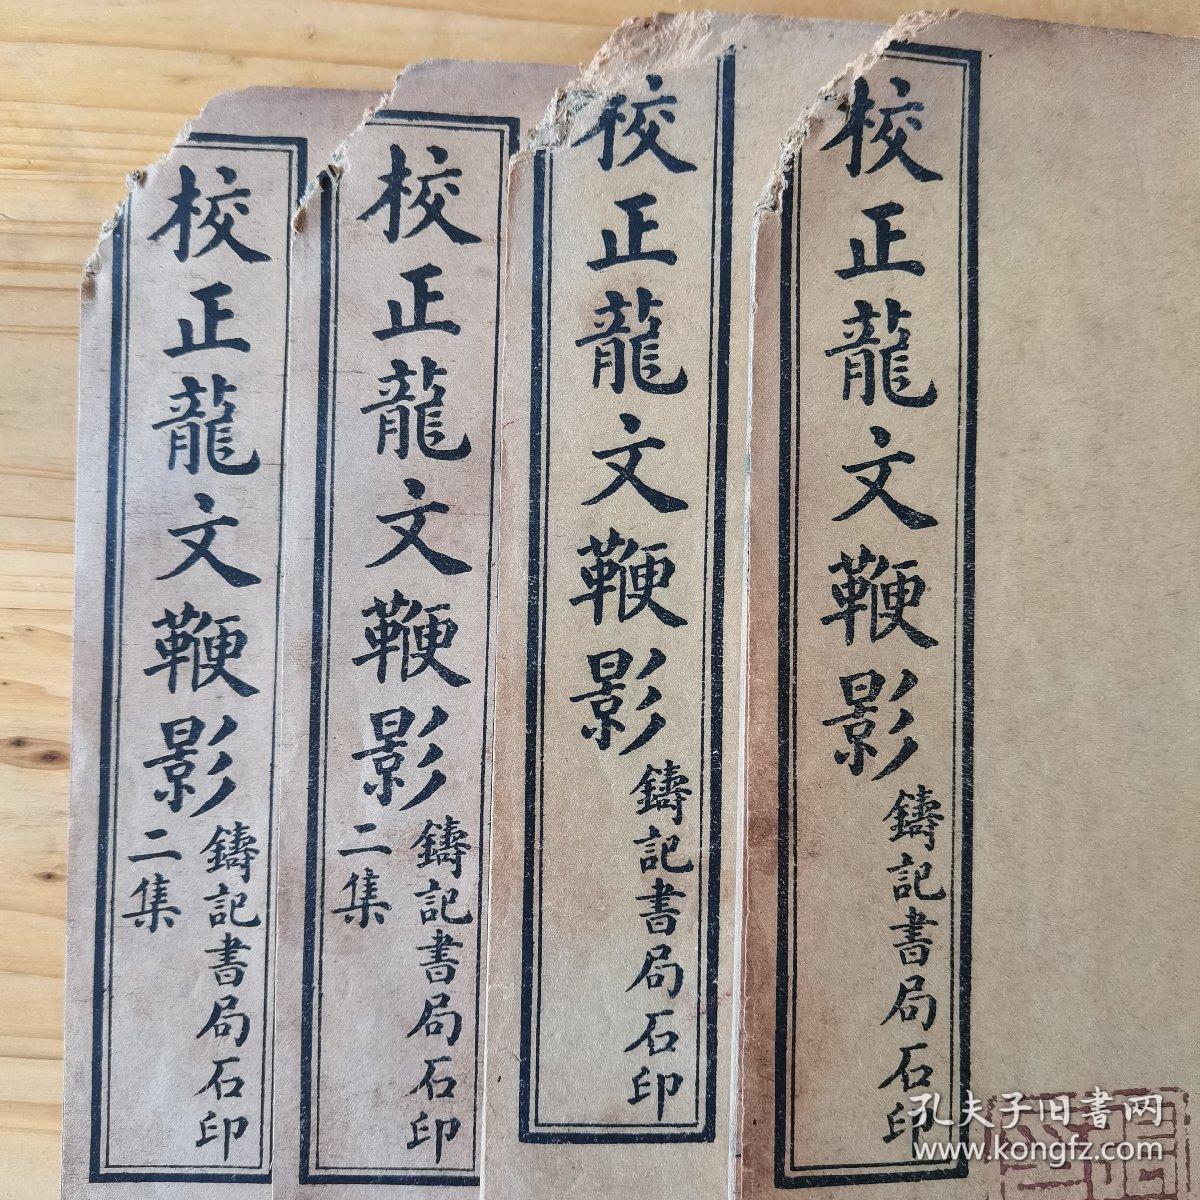 校正龍文鞭影
鑄記書局石印
校正龍文鞭影
鑄記書局石印
校正龍文鞭影
鑄記書局石印
二集
校正龍文鞭影
鑄記書局石印
二集
孔夫子旧書网
www.kongfz.com